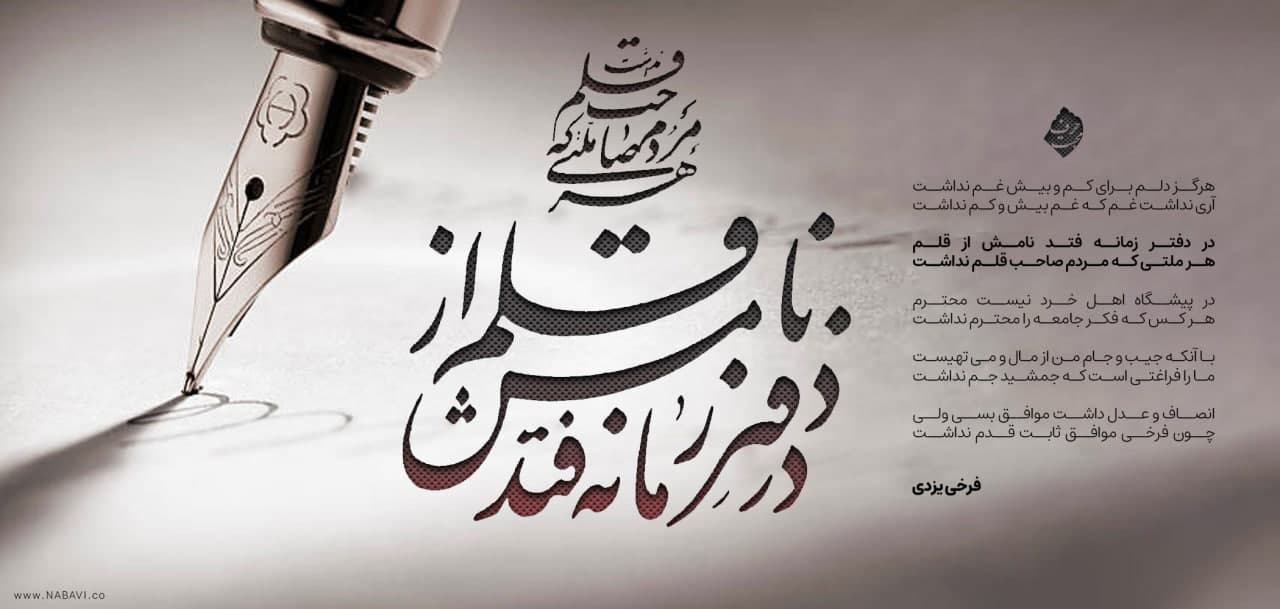 هر ملتی که مردم صاحب قلم نداشت
در دفتر زمانه فتد نامش از قلم
حرف
هرگز دلم برای کم و بیش غم نداشت
آری نداشت غم که غم بیش و کم نداشت
در دفتر زمانه فتد نامش از قلم
هر ملتی که مردم صاحب قلم نداشت
در پیشگاه اهل خرد نیست محترم
هر کس که فکر جامعه را محترم نداشت
با آنکه جیب و جام من از مال و می تهیست
ما را فراغتی است که جمشید جم نداشت
انصاف و عدل داشت موافق بسی ولی
چون فرخی موافق ثابت قدم نداشت
فرخی یزدی
www.NABAVI.co